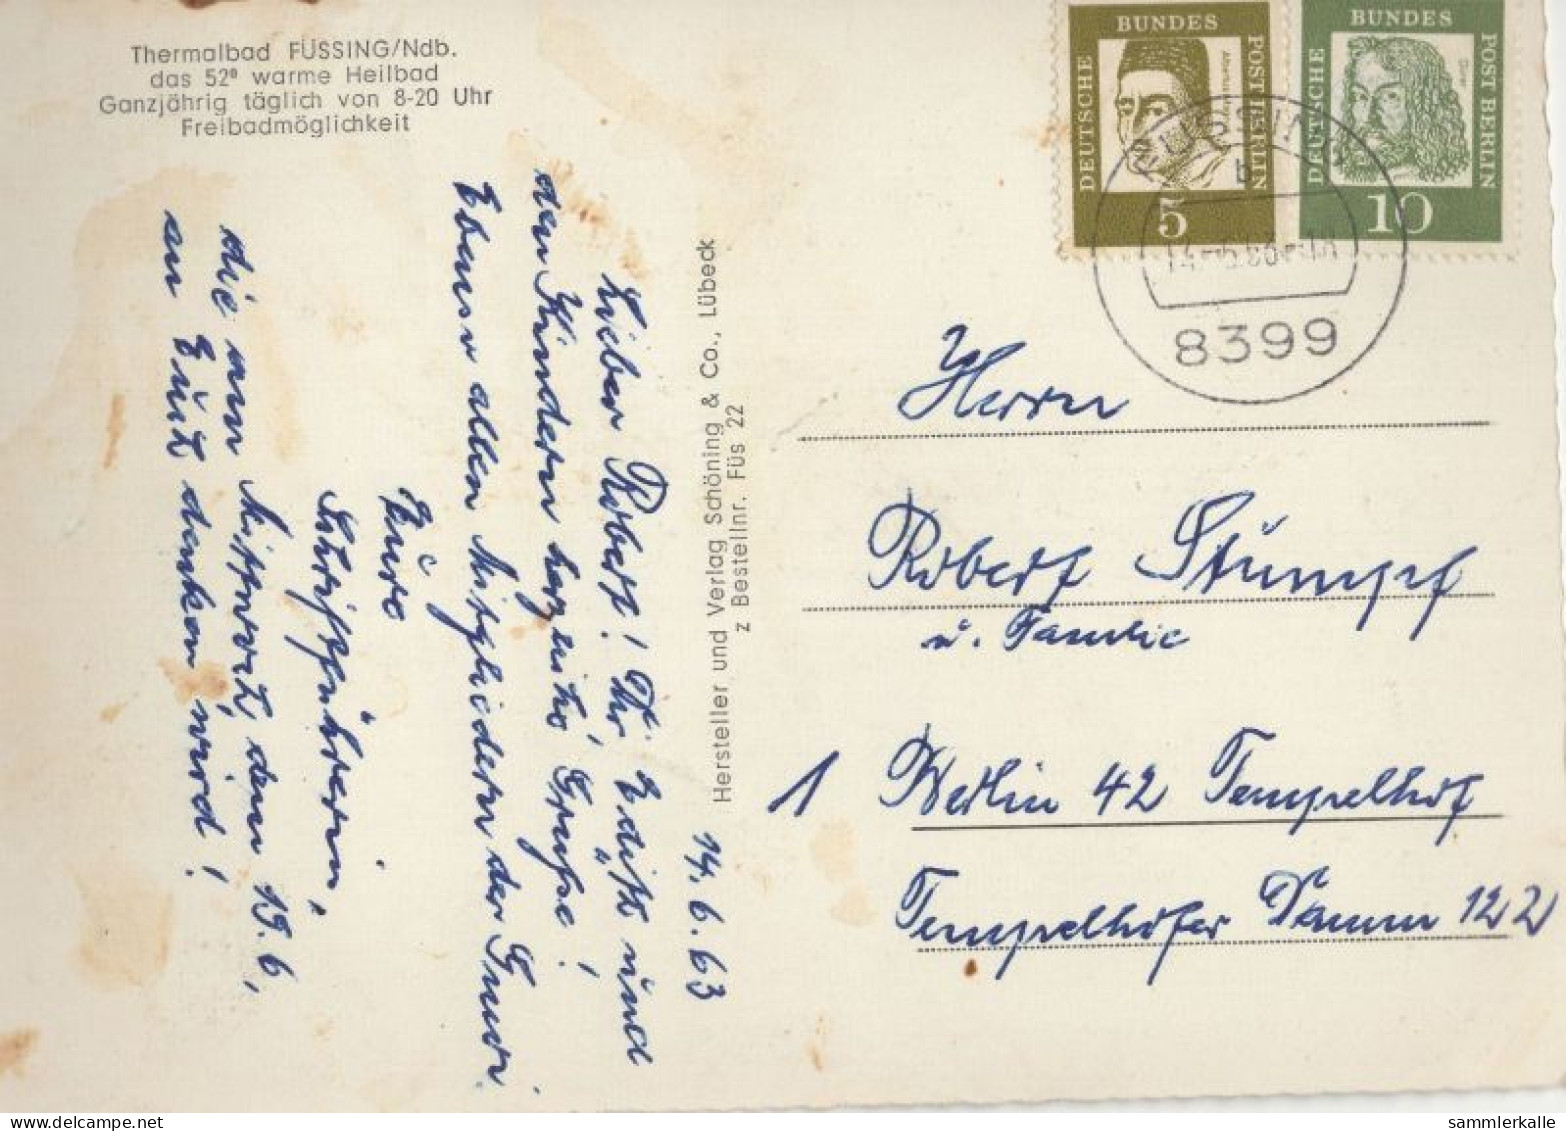 Thermalbad FÜSSING/Ndb.
das 52° warme Heilbad
Ganzjährig täglich von 8-20 Uhr
Freibadmöglichkeit
14. 6. 63
Lieber Robert! Dir, Edith und
den Kindern herzliche Grüße!
Ebenso allen Mitgliedern der
Eure
Schriftführerin,
die am Mittwoch, dem 19. 6,
an Euch denken wird!
Hersteller und Verlag Schöning & Co., Lübeck
z Bestellnr. Füs 22
DEUTSCHE BUNDES POST BERLIN
5
DEUTSCHE BUNDES POST BERLIN
Dürer
10
FÜSSING
b
8399
Herrn
Robert Stümpf
u. Familie
1 Berlin 42 Tempelhof
Tempelhofer Damm 122
sammlerkalle